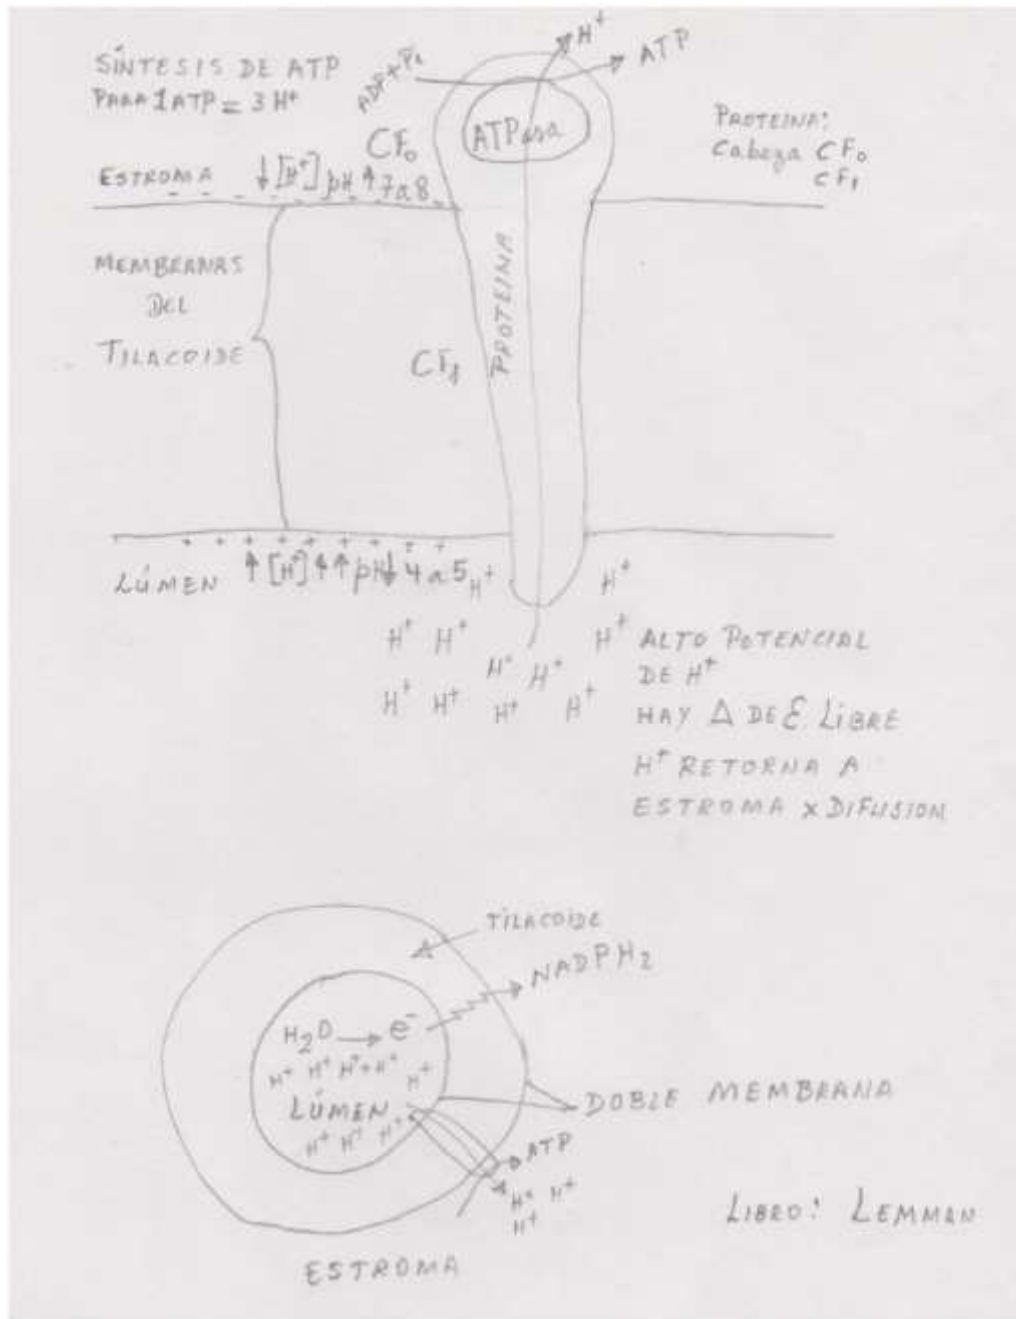 SÍNTESIS DE ATP
PARA 1 ATP = 3 H⁺
ADP + Pi
H⁺
ATP
CF₀
ATPasa
PROTEINA:
Cabeza CF₀
CF₁
ESTROMA ↓ [H⁺] pH ↑ 7 a 8
- - - - - - - - -
MEMBRANAS
DEL
TILACOIDE
PROTEINA
CF₁
+ + + + + + + + +
LÚMEN ↑ [H⁺] ↑ ↑ pH ↓ 4 a 5 H⁺ H⁺
H⁺ H⁺ H⁺ ALTO POTENCIAL
H⁺ H⁺ DE H⁺
H⁺ H⁺ H⁺ H⁺ HAY Δ DE E LIBRE
H⁺ RETORNA A
ESTROMA x DIFUSION
TILACOIDE
NADPH₂
H₂O → e⁻
H⁺ H⁺ H⁺ + H⁺ H⁺
LÚMEN
H⁺ H⁺ H⁺
DOBLE MEMBRANA
ATP
H⁺ H⁺
H⁺
LIBRO: LEMMAN
ESTROMA